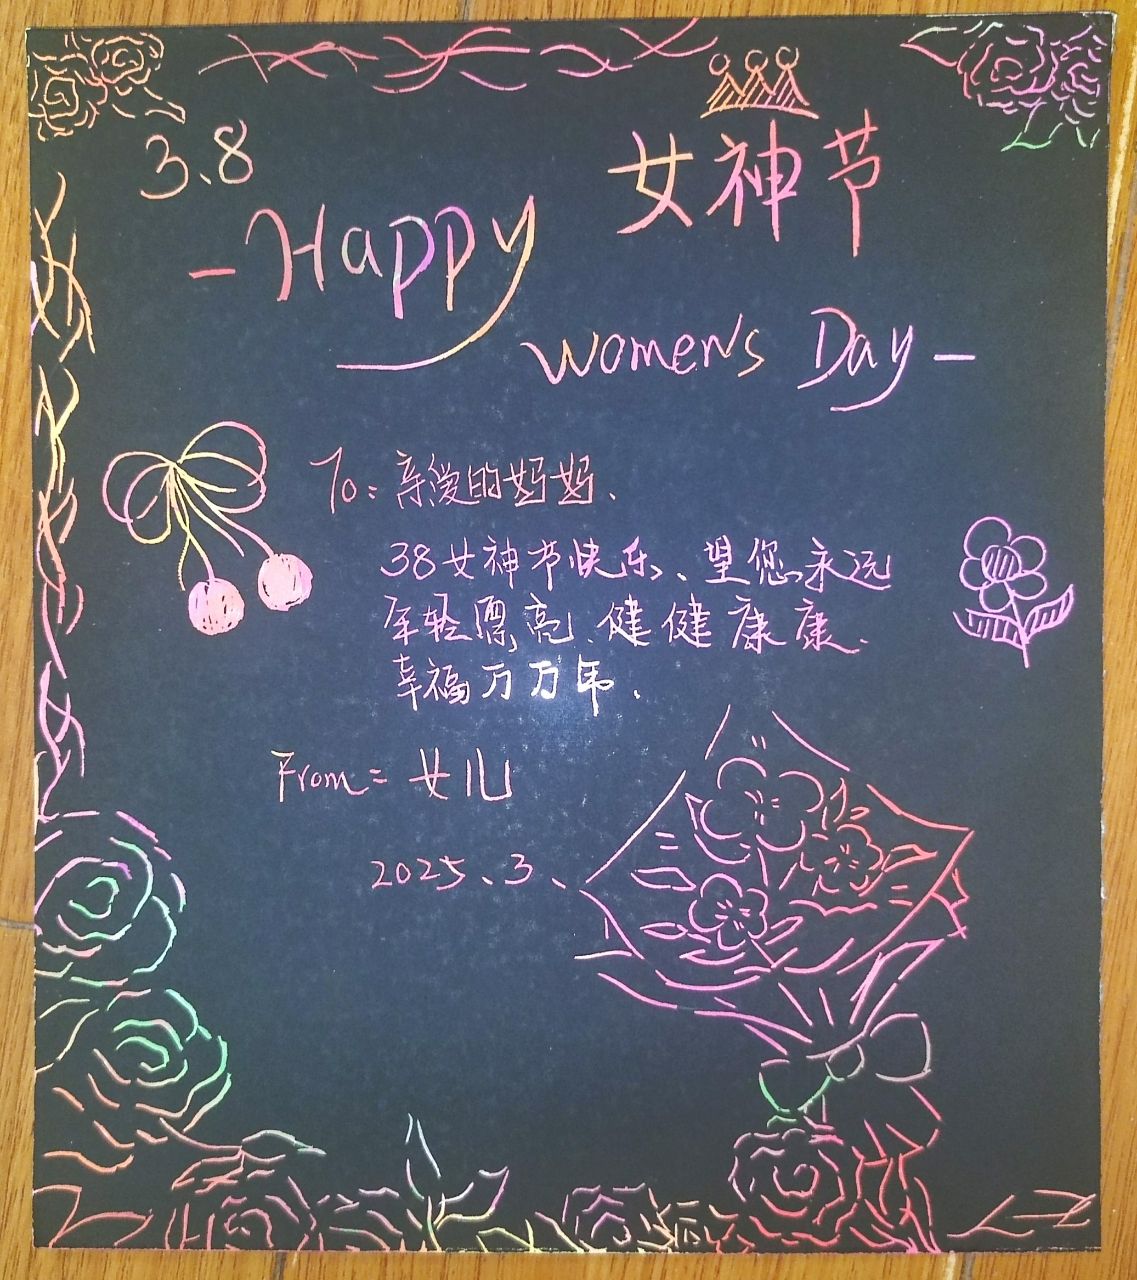 3.8 女神节
-Happy
Women's Day-
To: 亲爱的妈妈、
38女神节快乐、望您永远
年轻漂亮、健健康康、
幸福万万年、
From: 女儿
2025、3、